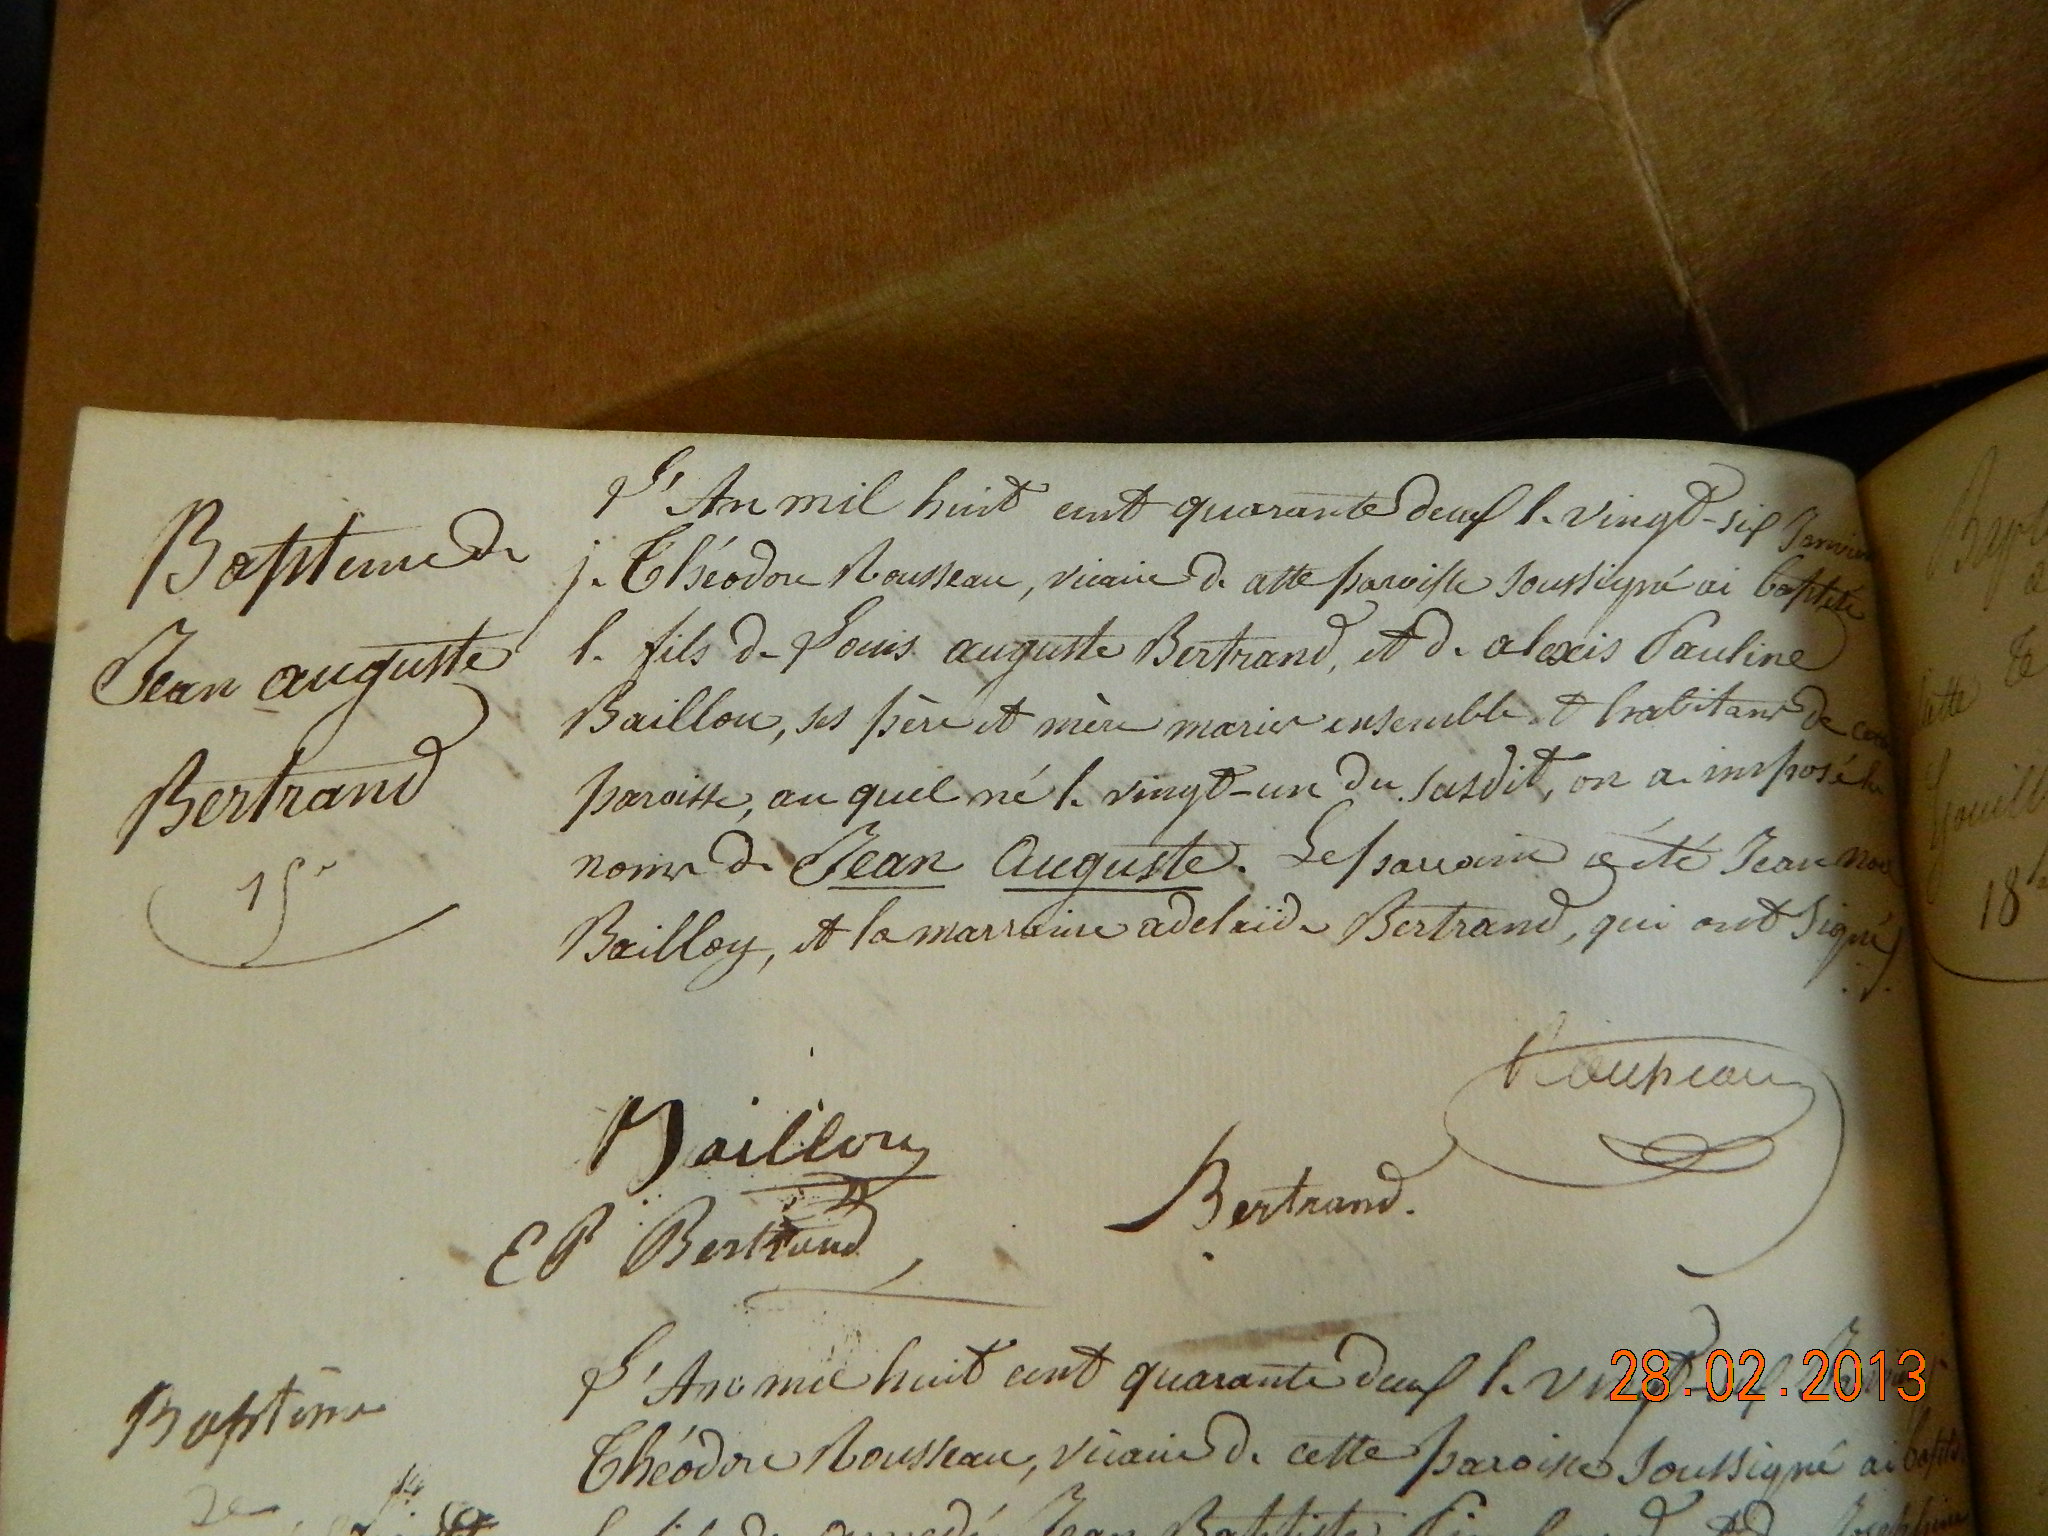 Baptême de
Jean auguste
Bertrand
15e
L'An mil huit cent quarante deux le vingt-six Janvier
je Théodore Rousseau, vicaire de cette paroisse soussigné ai baptisé
le fils de Louis auguste Bertrand, et de alexis Pauline
Baillou, ses père et mère mariés ensemble et habitans de cette
paroisse, au quel né le vingt-un du susdit, on a imposé le
noms de Jean Auguste. Le parrain a été Jean
Baillou, et la marraine adelaïde Bertrand, qui ont Signé
Rousseau
Baillou
Bertrand.
E P Bertrand
Baptême
de
L'An mil huit cent quarante deux le vingt-six Janvier
Théodore Rousseau, vicaire de cette paroisse soussigné ai baptisé
le fils de Jean Baptiste
28.02.2013
18